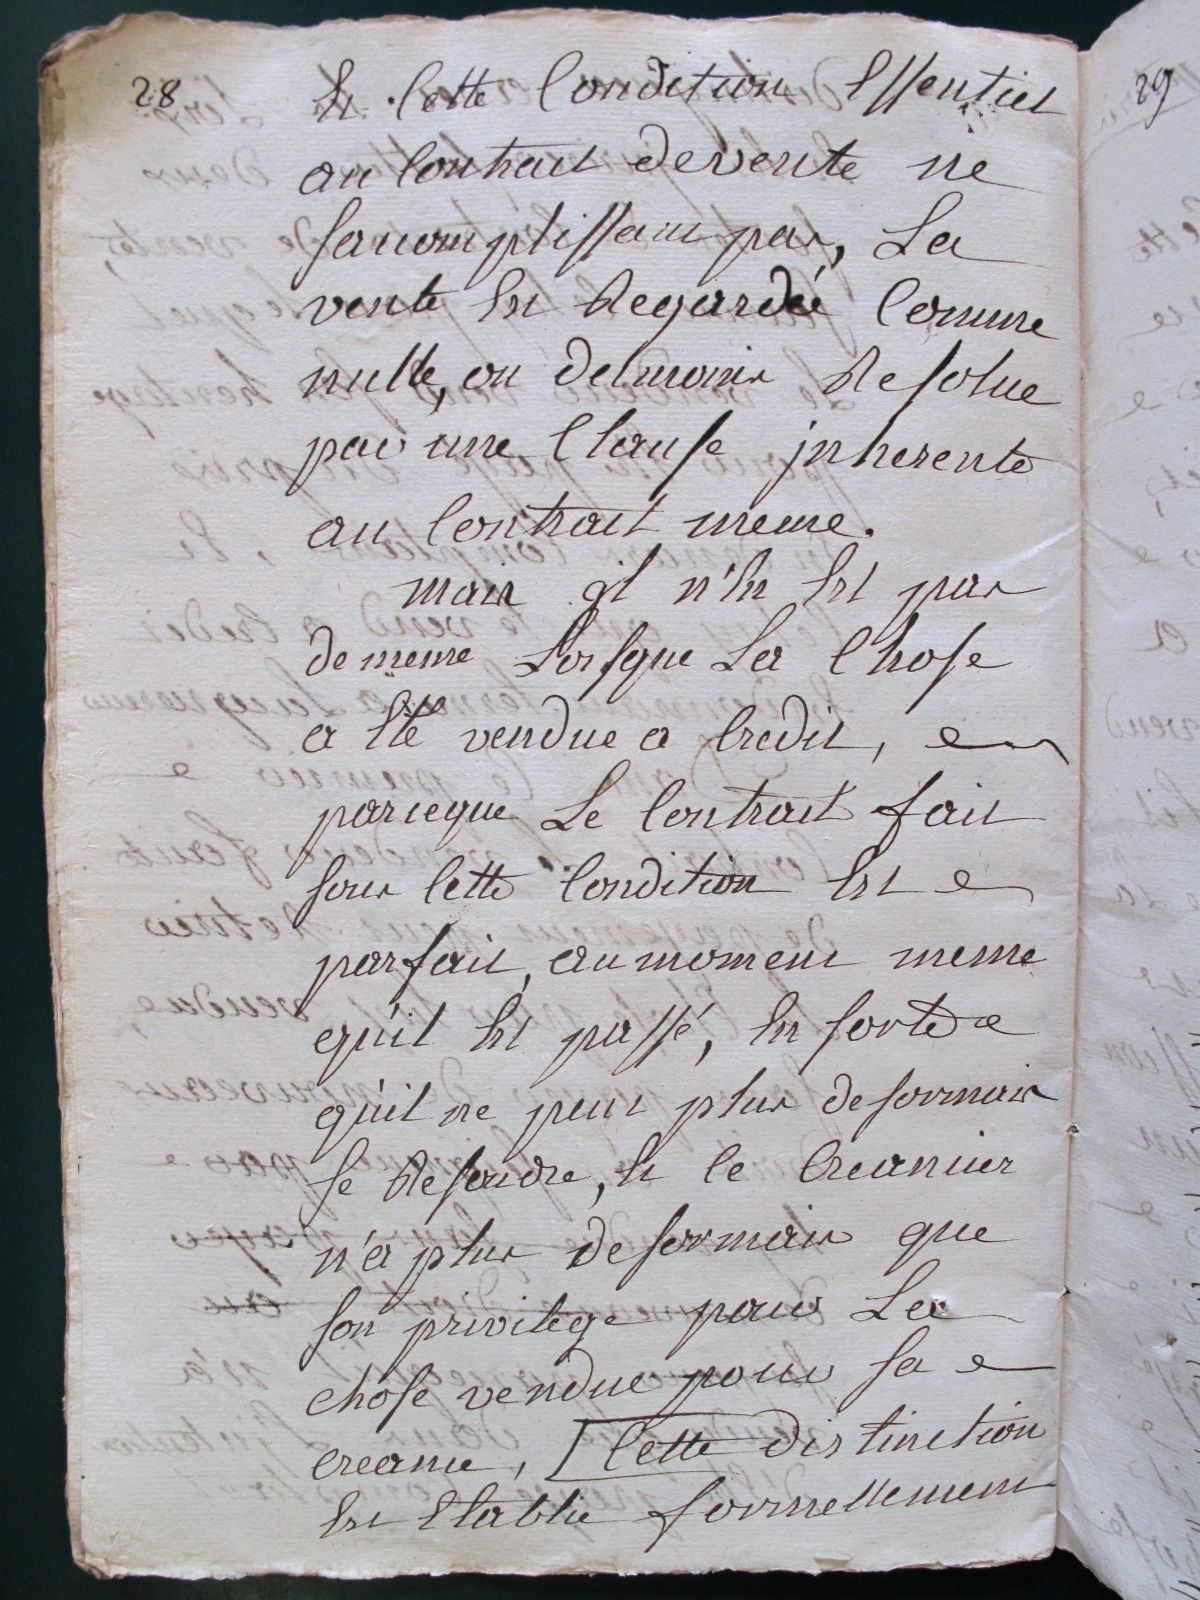 28
Et cette Condition Essentiel
au Contrait de vente ne
sacomplissant pas, La
vente Est Regardée Comme
nulle, ou dumoins Resolue
par une Clause jnherente
au Contrait meme.
mais il n'En Est pas
de meme Lorsque La Chose
a Eté vendue a Credit,
parceque Le Contrait fait
sous Cette Condition Est
parfait, au moment meme
qu'il Est passé, En sorte
qu'il ne peut plus desormais
se Resoudre, Et le Creancier
n'a plus desormais que
son privilege pour La
chose vendue pour sa
creance, [Cette distinction
Est Etablie formellement
29